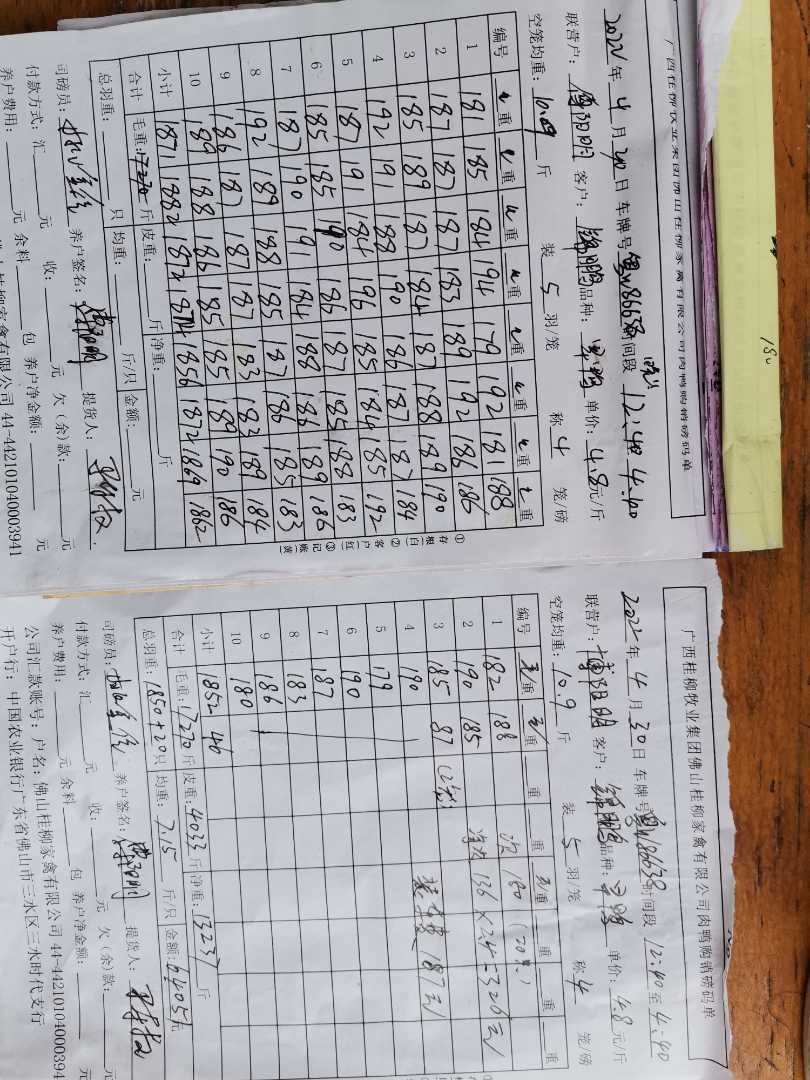 广西桂柳牧业集团佛山桂柳家禽有限公司肉鸭购销磅码单
2022年4月30日 车牌号 时间段 12:40 4:40
联营户: 客户: 品种: 单价:4.8元/斤
空笼均重:10.09斤 装5羽/笼 称4笼/磅
编号 重 重 重 重 重 重 重 重
1 191 185 184 194 179 192 181 188
2 187 187 187 183 189 192 186 186
3 185 189 187 184 187 188 189 190
4 192 191 188 190 186 187 187 184
5 187 191 184 196 185 184 185 192
6 185 185 190 186 187 185 188 183
7 187 190 191 184 188 186 189 186
8 192 189 188 185 187 186 185 183
9 186 187 187 187 183 183 189 184
10 189 188 186 185 185 189 190 186
小计 1871 1882 1872 1874 1856 1872 1869 1862
合计 毛重:17270斤 皮重: 斤 净重: 斤
总羽重: 只 均重: 斤/只 金额: 元
司磅员: 养户签名: 提货人:
付款方式:汇 元 收: 元 欠(余)款: 元
养户费用: 元 余料 包 养户净金额: 元
桂柳家禽有限公司 44-442101040003941
①存根(白) ②客户(红) ③记账(黄)
180
广西桂柳牧业集团佛山桂柳家禽有限公司肉鸭购销磅码单
2022年4月30日 车牌号 86638 时间段 12:40至4:40
联营户: 客户: 品种: 单价:4.8元/斤
空笼均重:10.9斤 装5羽/笼 称4笼/磅
编号 重 重 重 重 重 重 重 重
1 182 188 次 180 (20只)
2 190 185 136×24=3264元
3 185 87 (2笼) 187元
4 190
5 179
6 190
7 187
8 183
9 186
10 180
小计 1852 460
合计 毛重:17270斤 皮重:4033斤 净重:13237斤
总羽重:1850+20只 均重:7.15斤/只 金额:64051元
司磅员: 养户签名: 提货人:
付款方式:汇 元 收: 元 欠(余)款: 元
养户费用: 元 余料 包 养户净金额: 元
公司汇款账号:户名:佛山桂柳家禽有限公司 44-44210104000394
开户行:中国农业银行广东省佛山市三水区三水时代支行